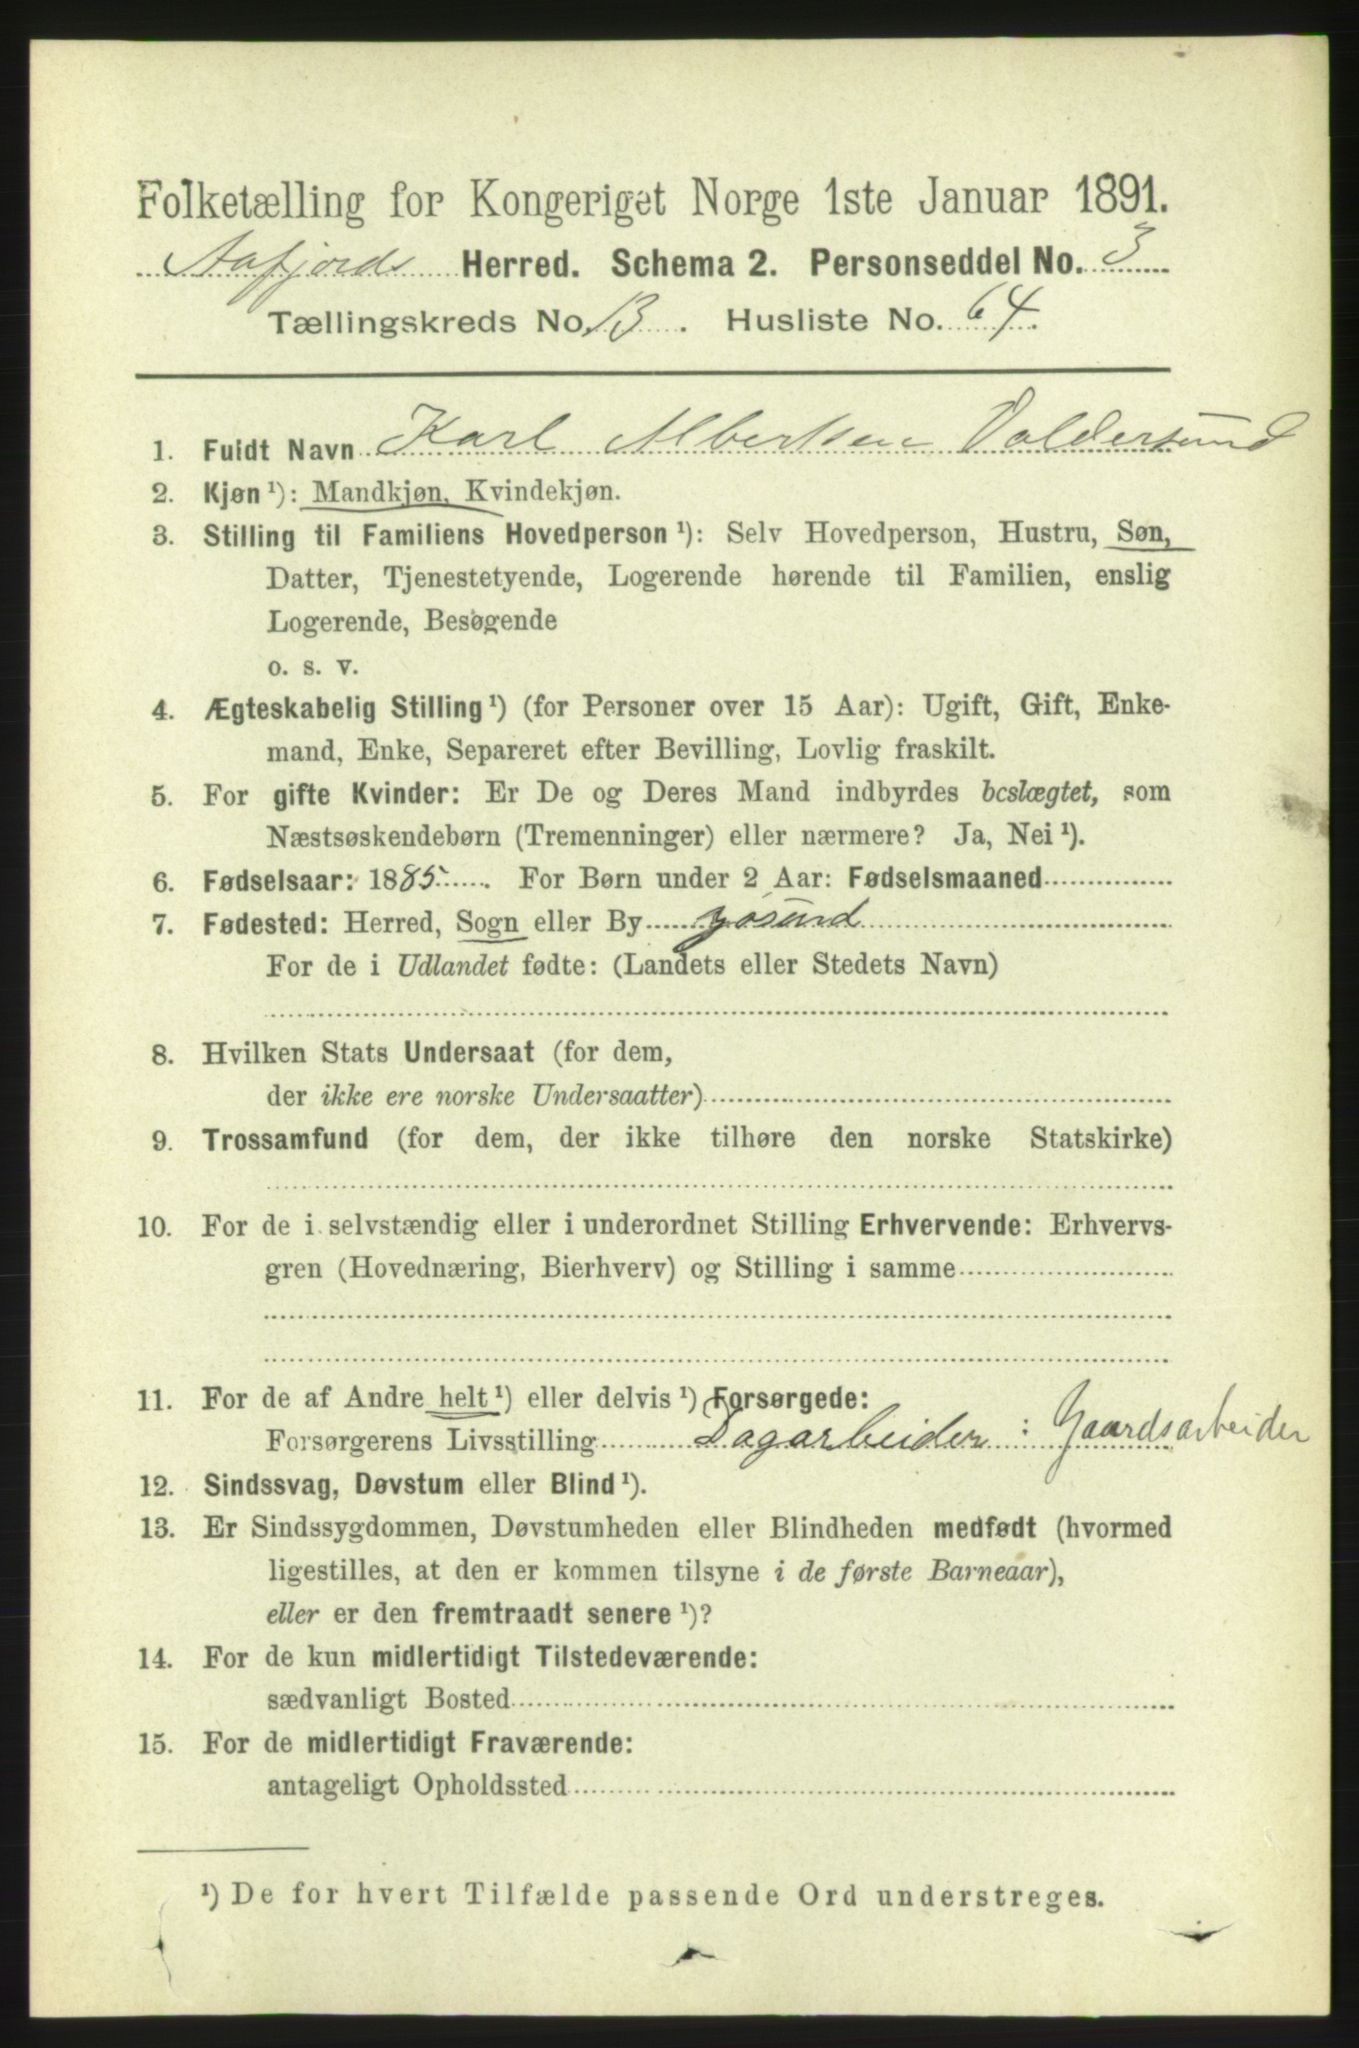 Folketælling for Kongeriget Norge 1ste Januar 1891.
Aafjords Herred. Schema 2. Personseddel No. 3
Tællingskreds No. 13. Husliste No. 64.
1. Fuldt Navn Karl Albertsen Valdersund
2. Kjøn ¹): Mandkjøn, Kvindekjøn.
3. Stilling til Familiens Hovedperson ¹): Selv Hovedperson, Hustru, Søn,
Datter, Tjenestetyende, Logerende hørende til Familien, enslig
Logerende, Besøgende
o. s. v.
4. Ægteskabelig Stilling ¹) (for Personer over 15 Aar): Ugift, Gift, Enke-
mand, Enke, Separeret efter Bevilling, Lovlig fraskilt.
5. For gifte Kvinder: Er De og Deres Mand indbyrdes beslægtet, som
Næstsøskendebørn (Tremenninger) eller nærmere? Ja, Nei ¹).
6. Fødselsaar: 1885. For Børn under 2 Aar: Fødselsmaaned
7. Fødested: Herred, Sogn eller By Jøsund
For de i Udlandet fødte: (Landets eller Stedets Navn)
8. Hvilken Stats Undersaat (for dem,
der ikke ere norske Undersaatter)
9. Trossamfund (for dem, der ikke tilhøre den norske Statskirke)
10. For de i selvstændig eller i underordnet Stilling Erhvervende: Erhvervs-
gren (Hovednæring, Bierhverv) og Stilling i samme
11. For de af Andre helt ¹) eller delvis ¹) Forsørgede:
Forsørgerens Livsstilling Dagarbeider : Gaardsarbeider
12. Sindssvag, Døvstum eller Blind ¹).
13. Er Sindssygdommen, Døvstumheden eller Blindheden medfødt (hvormed
ligestilles, at den er kommen tilsyne i de første Barneaar),
eller er den fremtraadt senere ¹)?
14. For de kun midlertidigt Tilstedeværende:
sædvanligt Bosted
15. For de midlertidigt Fraværende:
antageligt Opholdssted
¹) De for hvert Tilfælde passende Ord understreges.